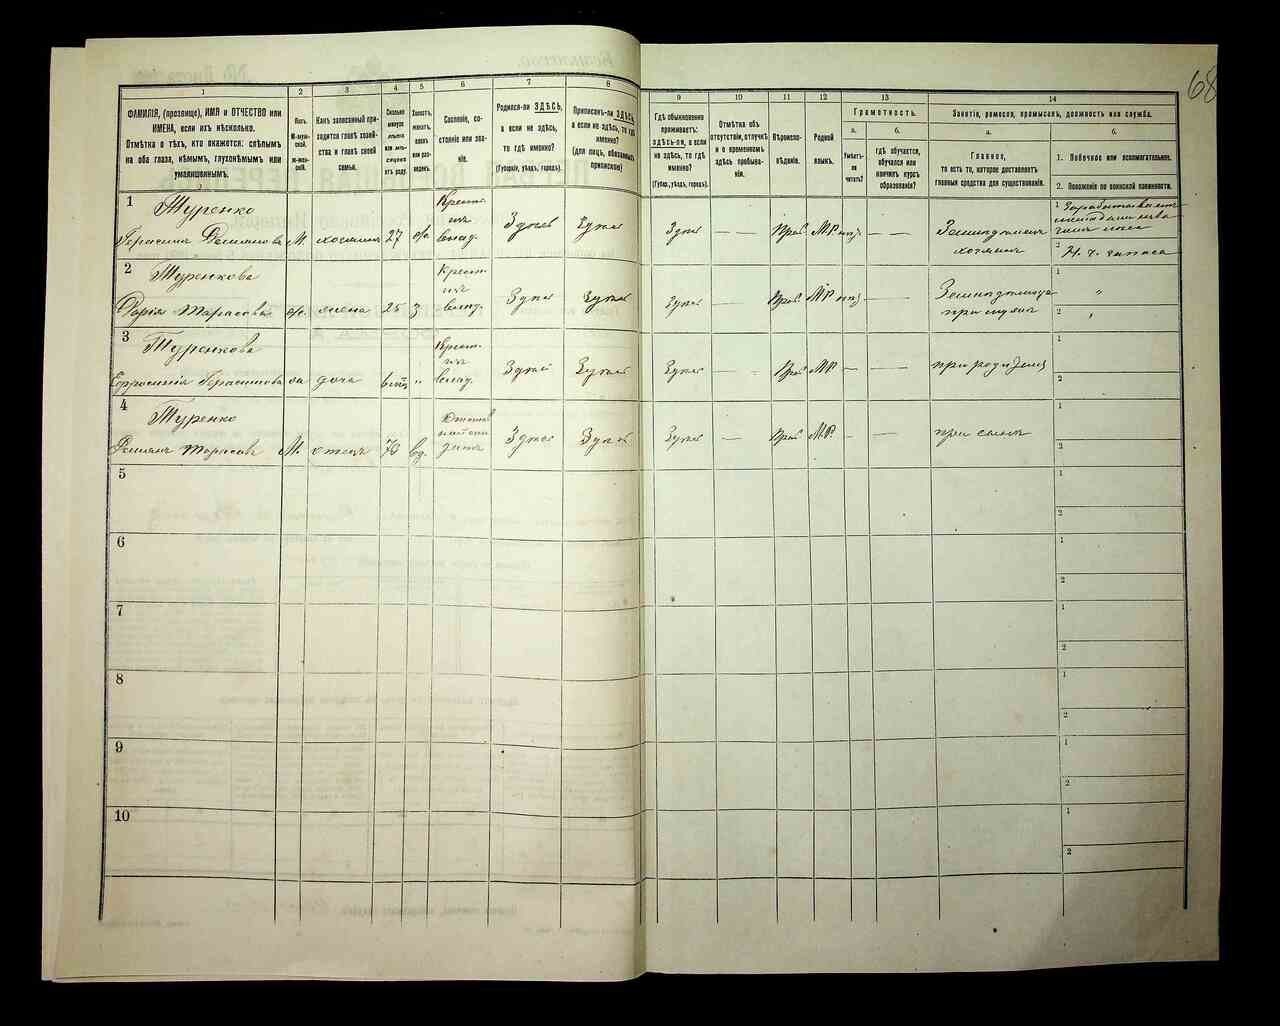 68
1
2
3
4
5
6
7
8
ФАМИЛІЯ, (прозвище), ИМЯ и ОТЧЕСТВО или
ИМЕНА, если ихъ нѣсколько.
Отмѣтка о тѣхъ, кто окажется: слѣпымъ
на оба глаза, нѣмымъ, глухонѣмымъ или
умалишеннымъ.
Полъ.
М-муж-
ской.
Ж-жен-
скій.
Какъ записанный при-
ходится главѣ хозяй-
ства и главѣ своей
семьи.
Сколько
минуло
лѣтъ
или мѣ-
сяцевъ
отъ роду.
Холостъ,
женатъ,
вдовъ
или раз-
веденъ.
Сословіе, со-
стояніе или зва-
ніе.
Родился-ли ЗДѢСЬ,
а если не здѣсь,
то гдѣ именно?
(Губернія, уѣздъ, городъ).
Приписанъ-ли ЗДѢСЬ,
а если не здѣсь, то гдѣ
именно?
(для лицъ, обязанныхъ
припискою)
9
10
11
12
13
14
Гдѣ обыкновенно
проживаетъ:
здѣсь-ли, а если
не здѣсь, то гдѣ
именно?
(Губер., уѣздъ, городъ).
Отмѣтка объ
отсутствіи, отлучкѣ
и о временномъ
здѣсь пребыва-
ніи.
Вѣроиспо-
вѣданіе.
Родной
языкъ.
Грамотность.
а.
б.
Умѣетъ-
ли
читать?
гдѣ обучается,
обучался или
кончилъ курсъ
образованія?
Занятіе, ремесло, промыселъ, должность или служба.
а.
б.
Главное,
то есть то, которое доставляетъ
главныя средства для существованія.
1. Побочное или вспомагательное.
2. Положеніе по воинской повинности.
1
Туренко
Герасимъ Демьяновъ М. хозяинъ 27 ж.
Крест.
изъ
владѣл.
Здѣсь Здѣсь Здѣсь — Прав. М.Р. — —
хозяинъ
1
2 Н. ч. запаса
2
Туренкова
Дарія Тарасова ж. жена 25 з
Крест.
изъ
владѣл.
Здѣсь Здѣсь Здѣсь — Прав. М.Р. — —
при мужѣ
1 "
2 "
3
Туренкова
Ефросинія Герасимова дочь "
Крест.
изъ
владѣл.
Здѣсь Здѣсь — Прав. М.Р. — —
при родителя
1
2
4
Туренко
Демьянъ Тарасовъ М. отецъ вд.
Здѣсь Здѣсь Здѣсь — Прав. М.Р. — —
при сынѣ
1
2
5
1
2
6
1
2
7
1
2
8
1
2
9
1
2
10
1
2